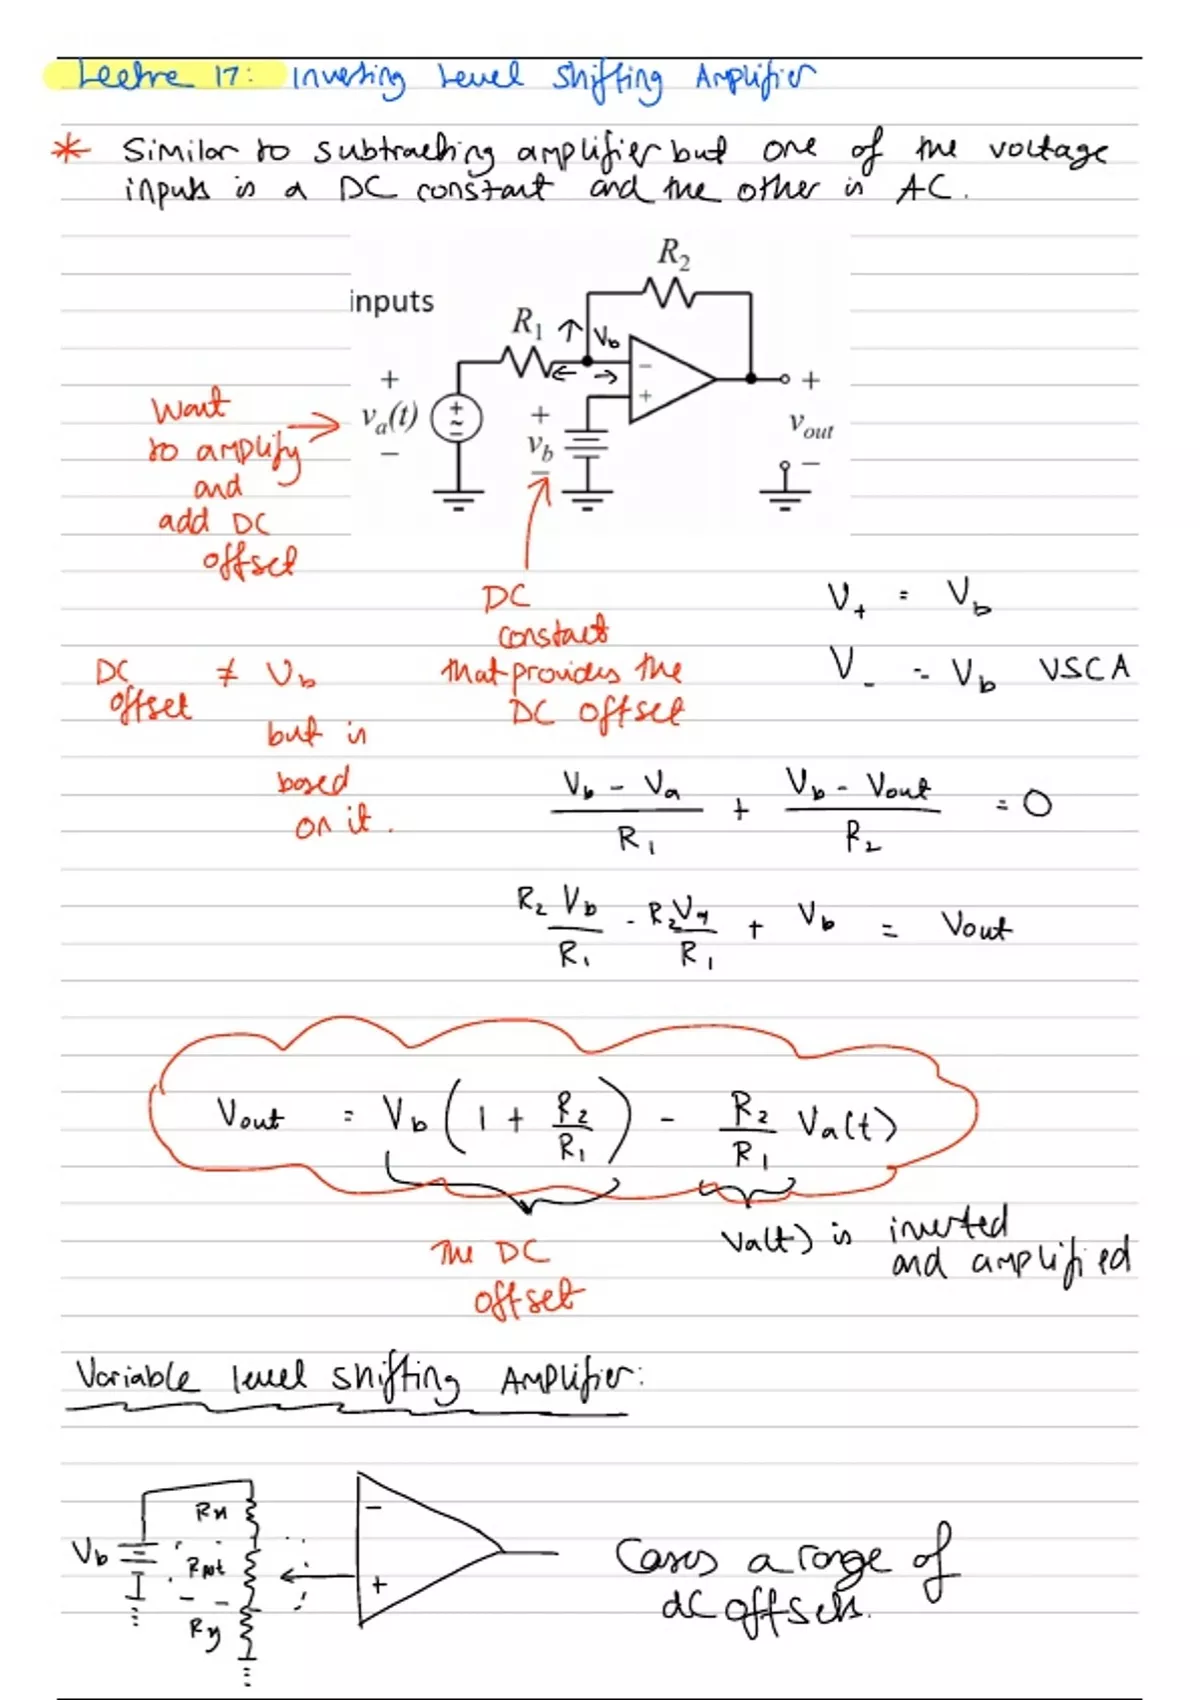 Lectre 17: Inverting Level Shifting Amplifier
* Similar to subtracting amplifier but one of the voltage
inputs is a DC constant and the other is AC.
inputs
R2
R1
Vb
+
va(t)
−
+
vb
−
−
+
+
vout
−
Want
to amplify
and
add DC
offset
DC
constact
that provides the
DC offset
DC offset ≠ Vb
but is
based
on it.
V+ = Vb
V- = Vb VSCA
Vb - Va / R1 + Vb - Vout / R2 = 0
R2 Vb / R1 - R2 Va / R1 + Vb = Vout
Vout = Vb ( 1 + R2 / R1 ) - R2 / R1 Va(t)
The DC
offset
Va(t) is inverted
and amplified
Variable level shifting Amplifier:
Rx
Vb
Rpot
Ry
−
+
a range of
dc offsets.